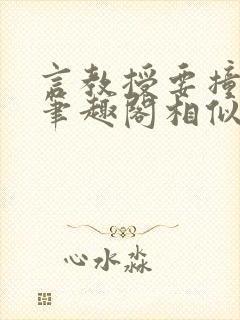 言教授要撞
筆趣閣相似
心水淼